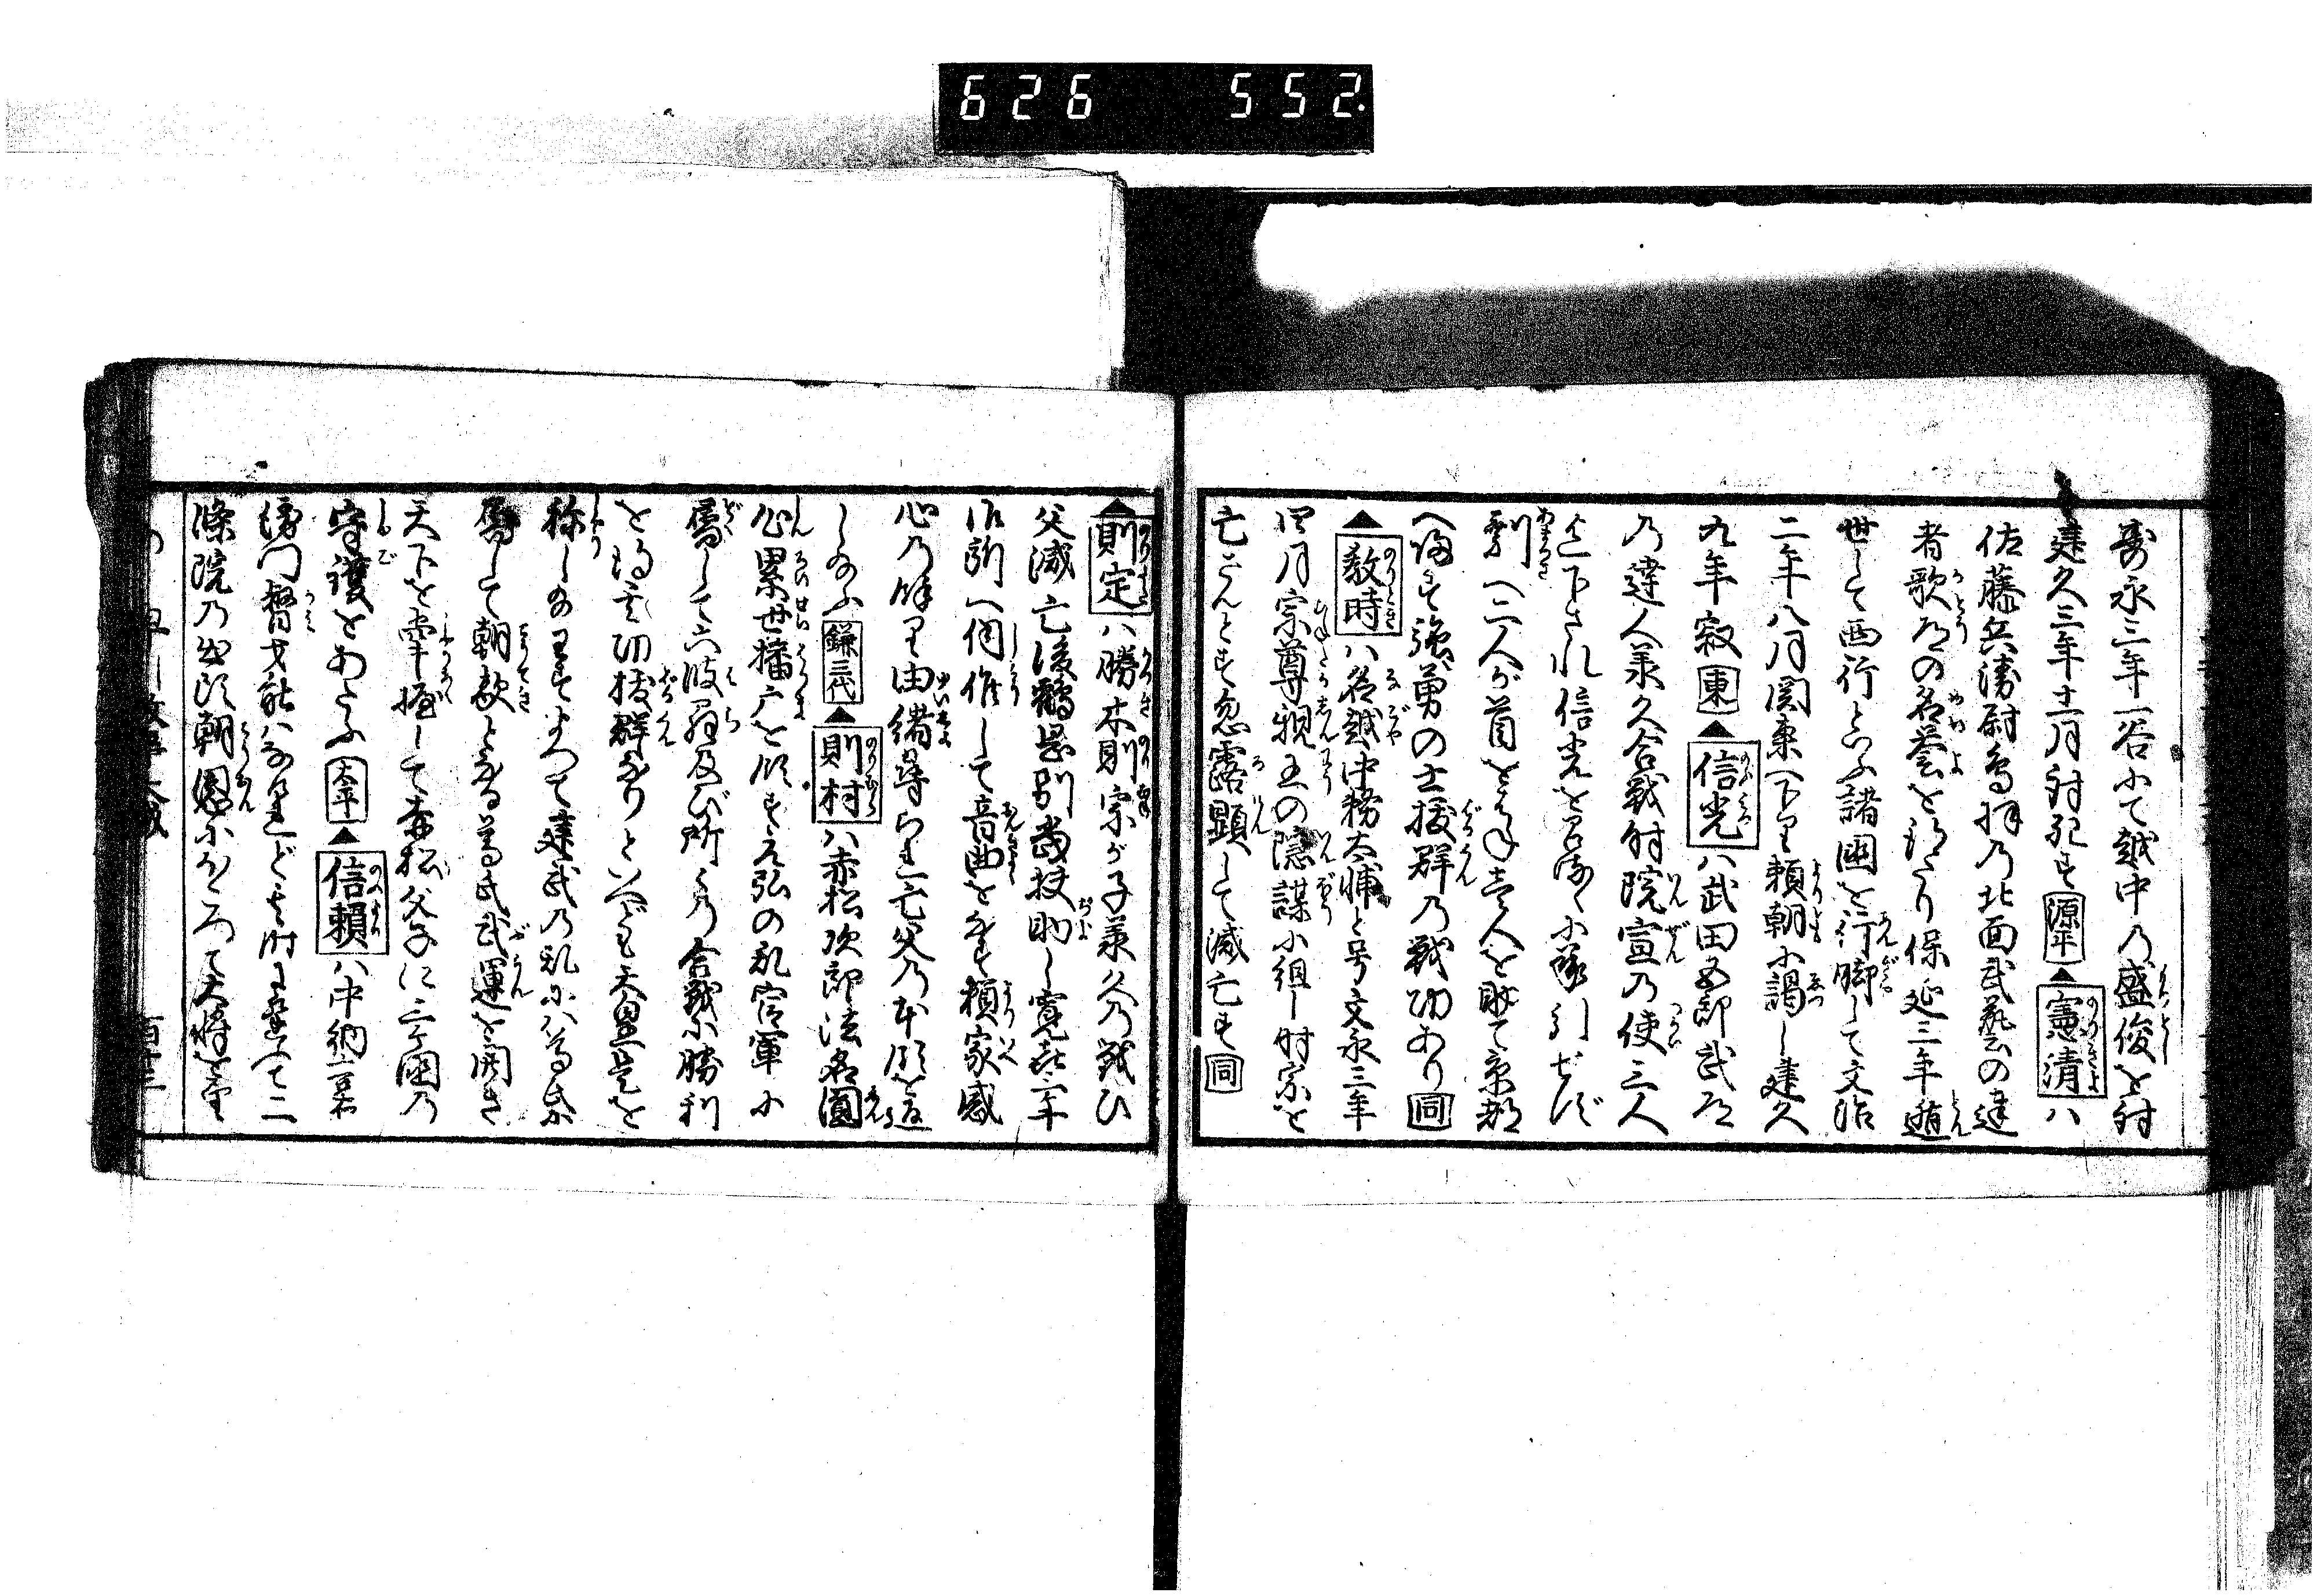 626 552
寿永三年一谷にて越中の盛俊を討
建久三年十一月討死す 源平 ▲憲清ハ
佐藤兵衛尉鳥羽の北面武藝の達
者歌道の名誉を得たり保延三年遁
世して西行といふ諸国を行脚して文治
二年八月関東へ下り頼朝に謁し建久
九年寂 東 ▲信光ハ武田五郎武道
の達人承久合戦時院宣の使三人
下され信光を
へ二人が首を 壱人を助て京都
へ帰す強勇の士抜群の戦功あり 同
▲教時ハ名越中務太輔と号文永三年
四月宗尊親王の隠謀に組し時宗を
亡さんとす忽露顕して滅亡す 同
▲則定ハ勝木則宗が子承久の戦ひ
父滅亡後鶴岡別当扶助し寛喜二年
御所へ伺候して音曲をなす頼家感
心の餘り由緒尋られ亡父の本領を返
し給ふ 鎌三代 ▲則村ハ赤松次郎法名圓
心累世播广を領す元弘の乱官軍に
属して六波羅及び所々の合戦に勝利
を得其功抜群なりといへども天皇是を
称し給わずよつて建武の乱にハ尊氏に
属して朝敵となる尊氏武運を開き
天下を掌握して赤松父子に三ヶ国の
守護をあたふ 太平 ▲信頼ハ中納言右
衛門督才能ハなけれども時にあふて二
條院の出頭朝恩にほころて大将を望